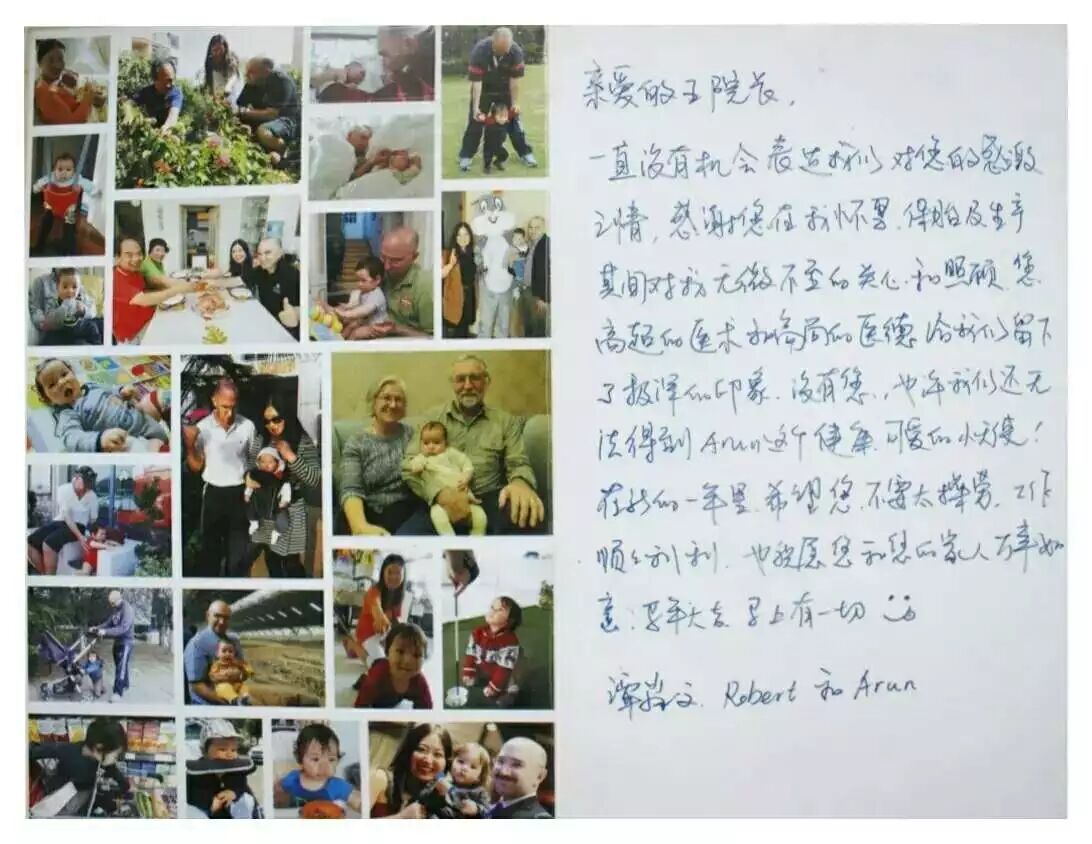 亲爱的王院长，
一直没有机会表达我们对您的感激
之情，感谢您在我怀孕、保胎及生产
其间对我无微不至的关心和照顾，您
高超的医术和崇高的医德给我们留下
了极深的印象，没有您，也许我们还无
法得到Arun这个健康、可爱的小天使！
在新的一年里，希望您，不要太操劳，工作
顺顺利利，也祝愿您和您的家人万事如
意，马年大吉，马上有一切
Robert 和 Arun